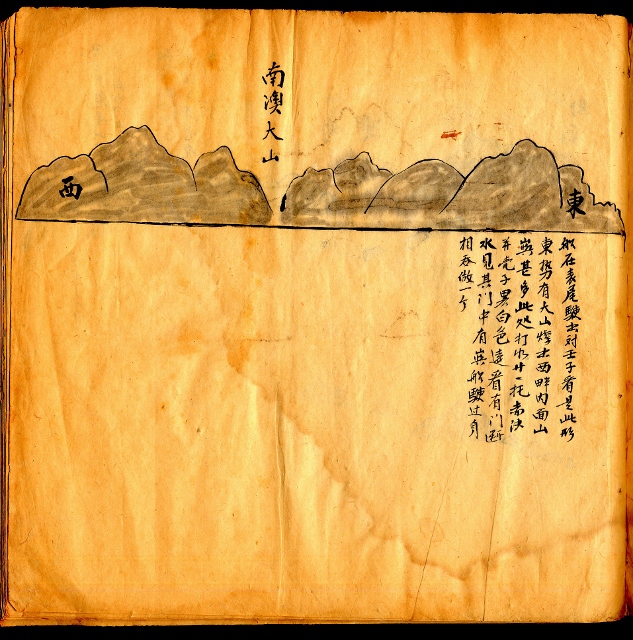 南澳大山
東
西
船在表尾駛出對壬子看是此形
東勢有大山燈出西畔内面山
嶼甚多此処打水廿二托赤泱
并壳子黑白色遠看有门断
水見其门中有嶼船駛过身
相吞做一个